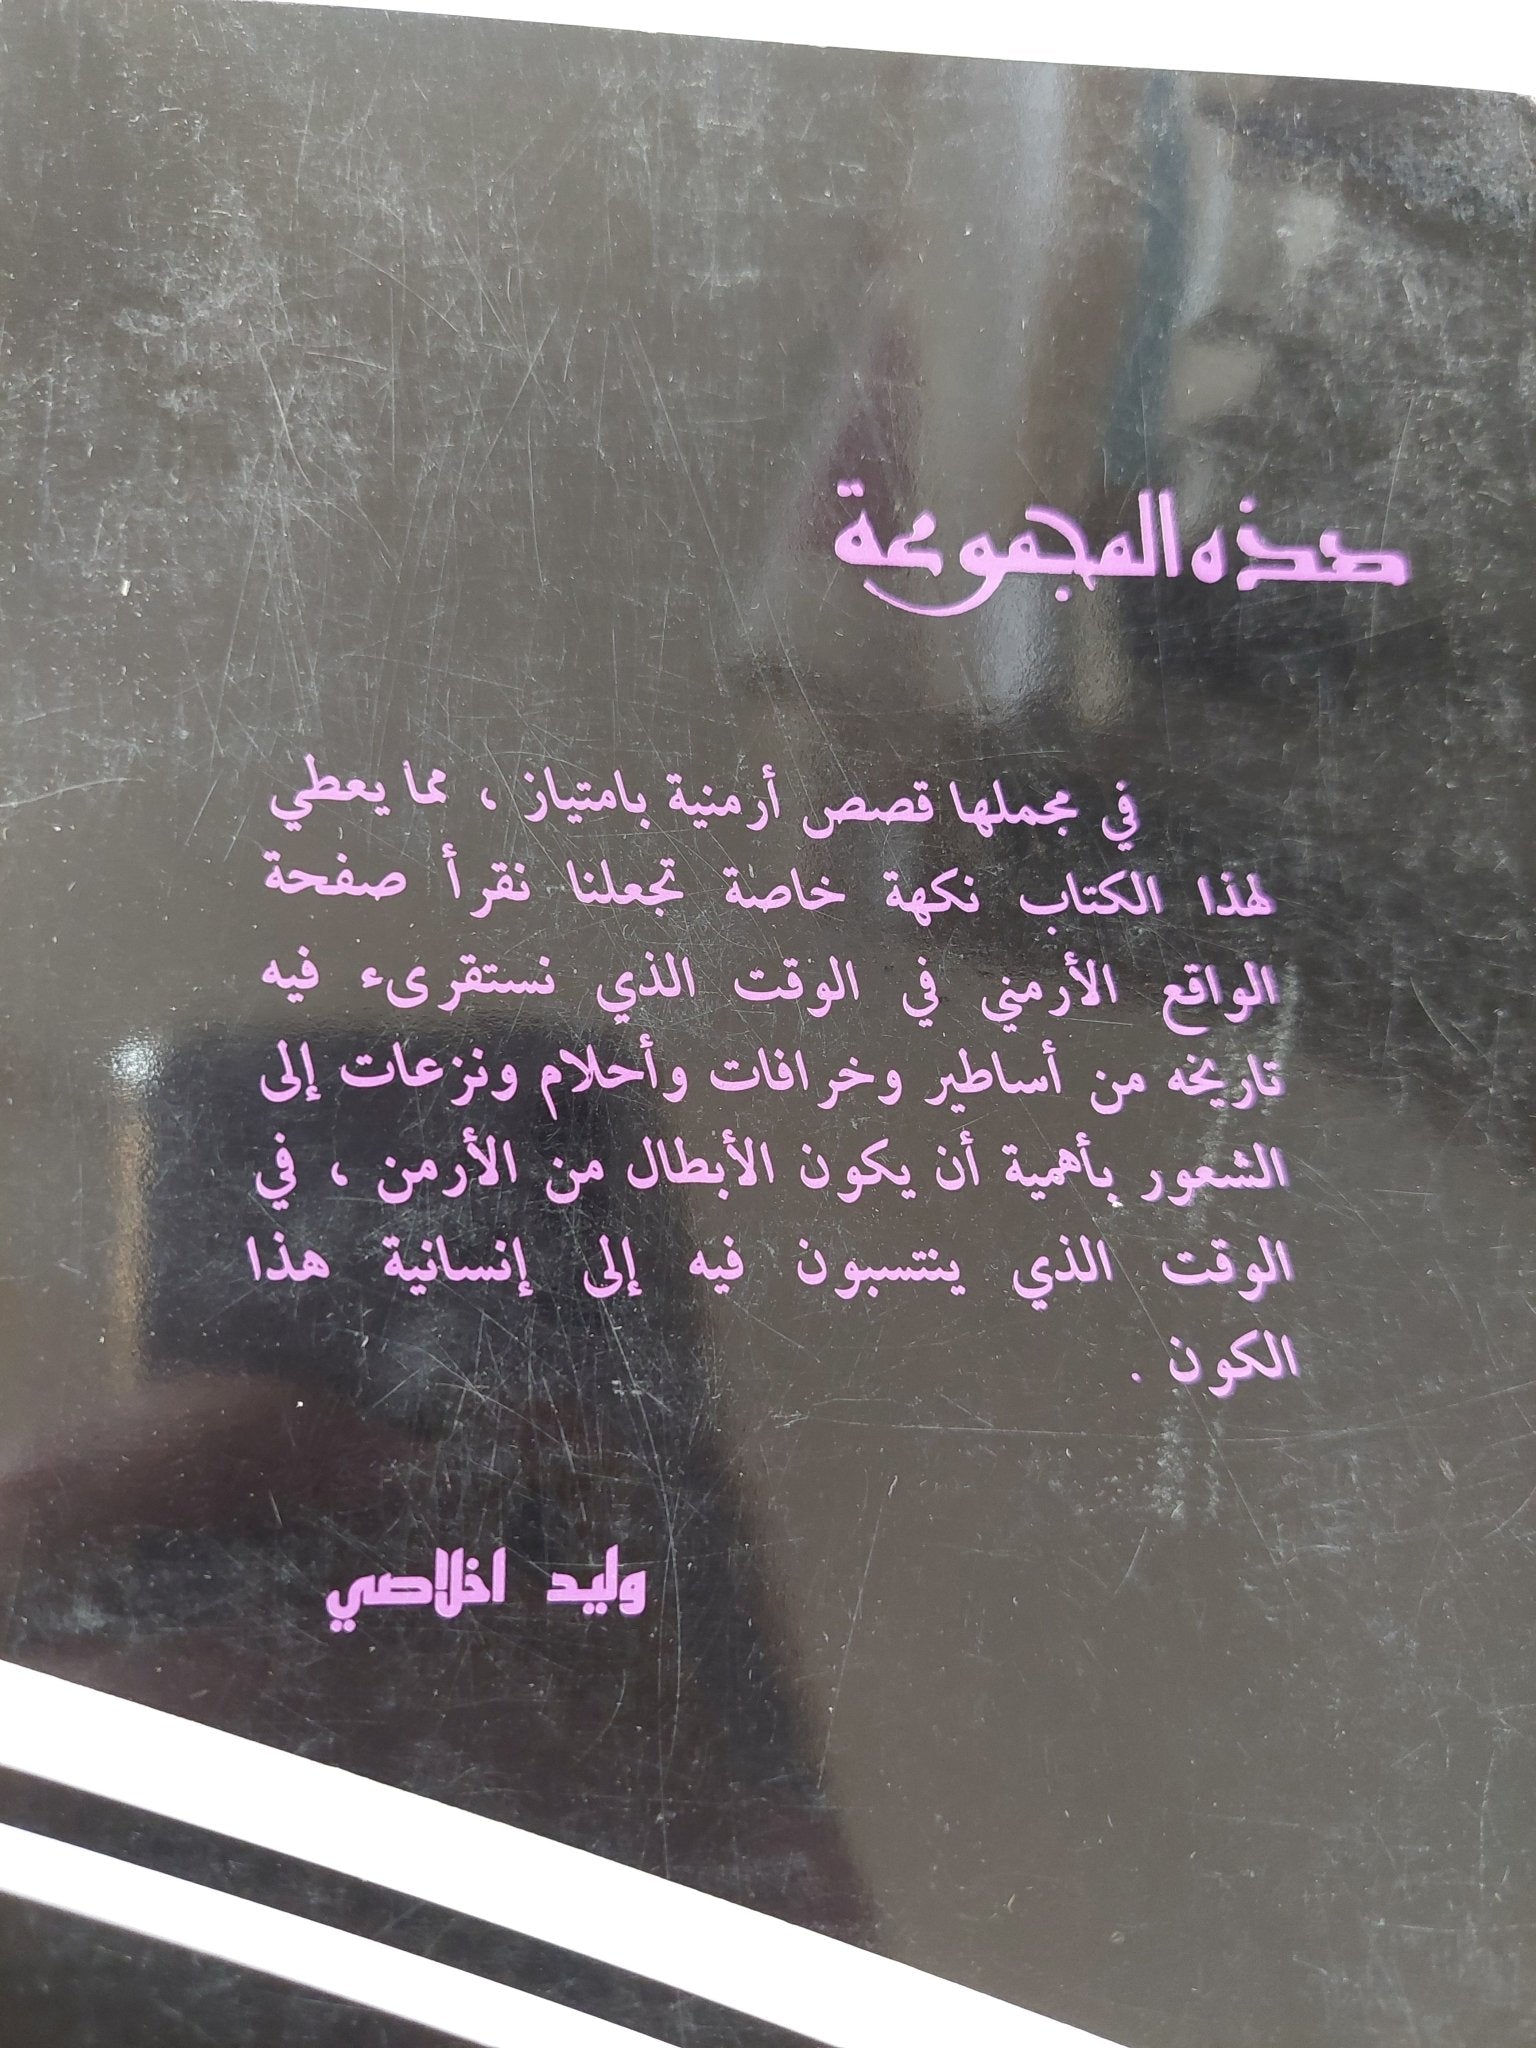 هذه المجموعة
في مجملها قصص أرمنية بامتياز ، مما يعطي
لهذا الكتاب نكهة خاصة تجعلنا نقرأ صفحة
الواقع الأرمني في الوقت الذي نستقرىء فيه
تاريخه من أساطير وخرافات وأحلام ونزعات إلى
الشعور بأهمية أن يكون الأبطال من الأرمن ، في
الوقت الذي ينتسبون فيه إلى إنسانية هذا
الكون .
وليد اخلاصي